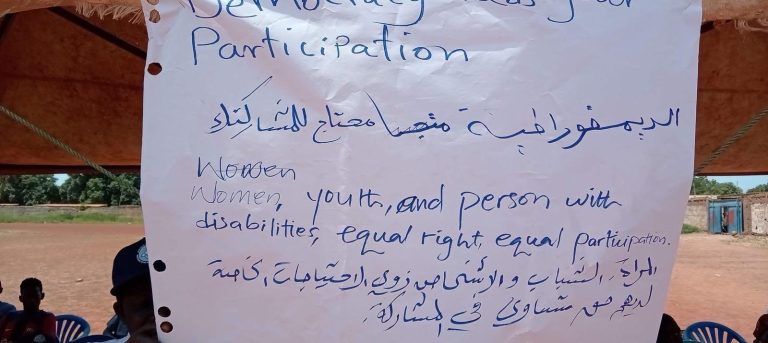 Democracy needs your
Participation
الديمقراطية محتاج للمشاركتك
Women
Women, youth, and person with
disabilities, equal right, equal participation.
المراة، الشباب والأشخاص زوي الاحتياجات الخاصة
لديهم حق متساوي في المشاركة.